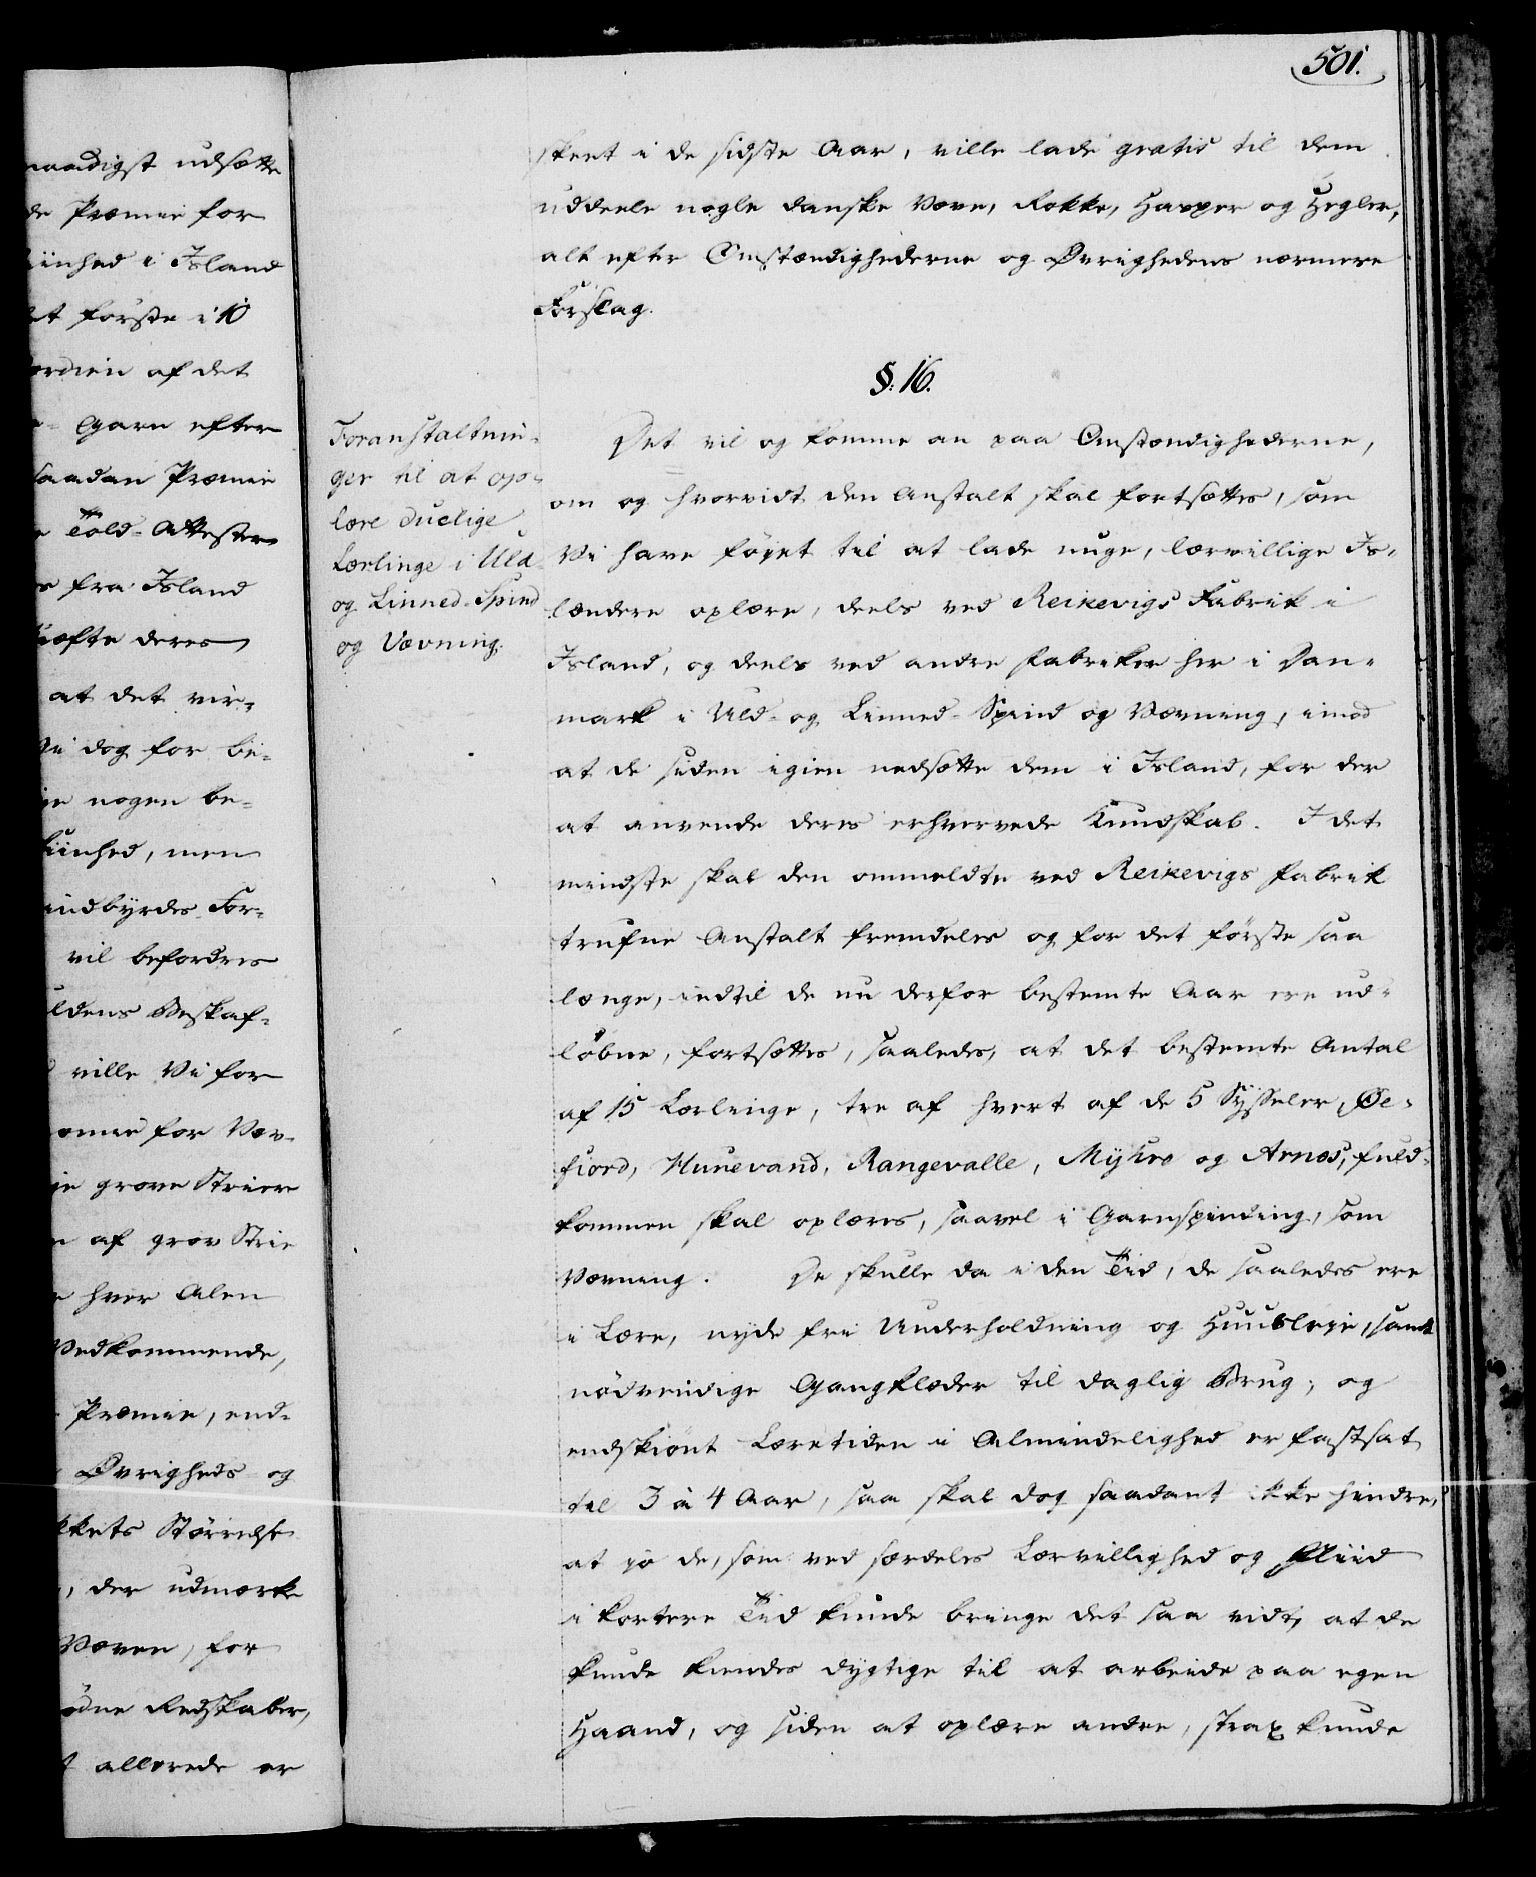 naadigst udsætte
de Præmie for
iinhed i Island
et første i 10
ærdien af det
Garn efter
saadan Præmie
Told-Attester
fra Island
æfte deres
at det vir-
Vi dog for be-
nogen be-
iinhed, men
indbyrdes For-
vil befordres
ldens Beskaf-
ville Vi for
æmie for Væv-
grove Strier
af grov Strie
hver Alen
Vedkommende,
Præmie, end-
Øvrigheds og
kkets Størrelse
, der udmærke
Væven, for
ødne Redskaber,
allerede er
501.
skeet i de sidste Aar, ville lade gratis til dem
uddeele nogle danske Væve, Rokke, Harper og Hegler,
alt efter Omstændighederne og Øvrighedens nærmere
Forslag.
§. 16.
Foranstaltnin-
ger til at op-
lære duelige
Lærlinge i Uld-
og Linned-Spind
og Vævning.
Det vil og komme an paa Omstændighederne,
om og hvorvidt den Anstalt skal fortsættes, som
Vi have føjet til at lade unge, lærvillige Is-
lændere oplære, deels ved Reikevigs Fabrik i
Island, og deels ved andre Fabriker her i Dan-
mark i Uld- og Linned-Spind og Vævning, imod
at de siden igien nedsætte dem i Island, for der
at anvende deres erhvervede Kundskab. I det
mindste skal den ommeldte ved Reikevigs Fabrik
trufne Anstalt fremdeles og for det første saa
længe, indtil de nu derfor bestemte Aar ere ud-
løbne, fortsættes, saaledes, at det bestemte Antal
af 15 Lærlinge, tre af hvert af de 5 Sysseler, Øe-
fiord, Hunevand, Rangevalle, Myhre og Arnes, fuld-
kommen skal oplæres, saavel i Garnspinding, som
Vævning. De skulle da i den Tid, de saaledes ere
i Lære, nyde fri Underholdning og Huusleje, samt
nødvendige Gangklæder til daglig Brug; og
endskiønt Læretiden i Almindelighed er fastsat
til 3 à 4 Aar, saa skal dog saadant ikke hindre,
at jo de, som ved særdeles Lærvillighed og Fliid
i kortere Tid kunde bringe det saa vidt, at de
kunde kiendes dygtige til at arbeide paa egen
Haand, og siden at oplære andre, strax kunde